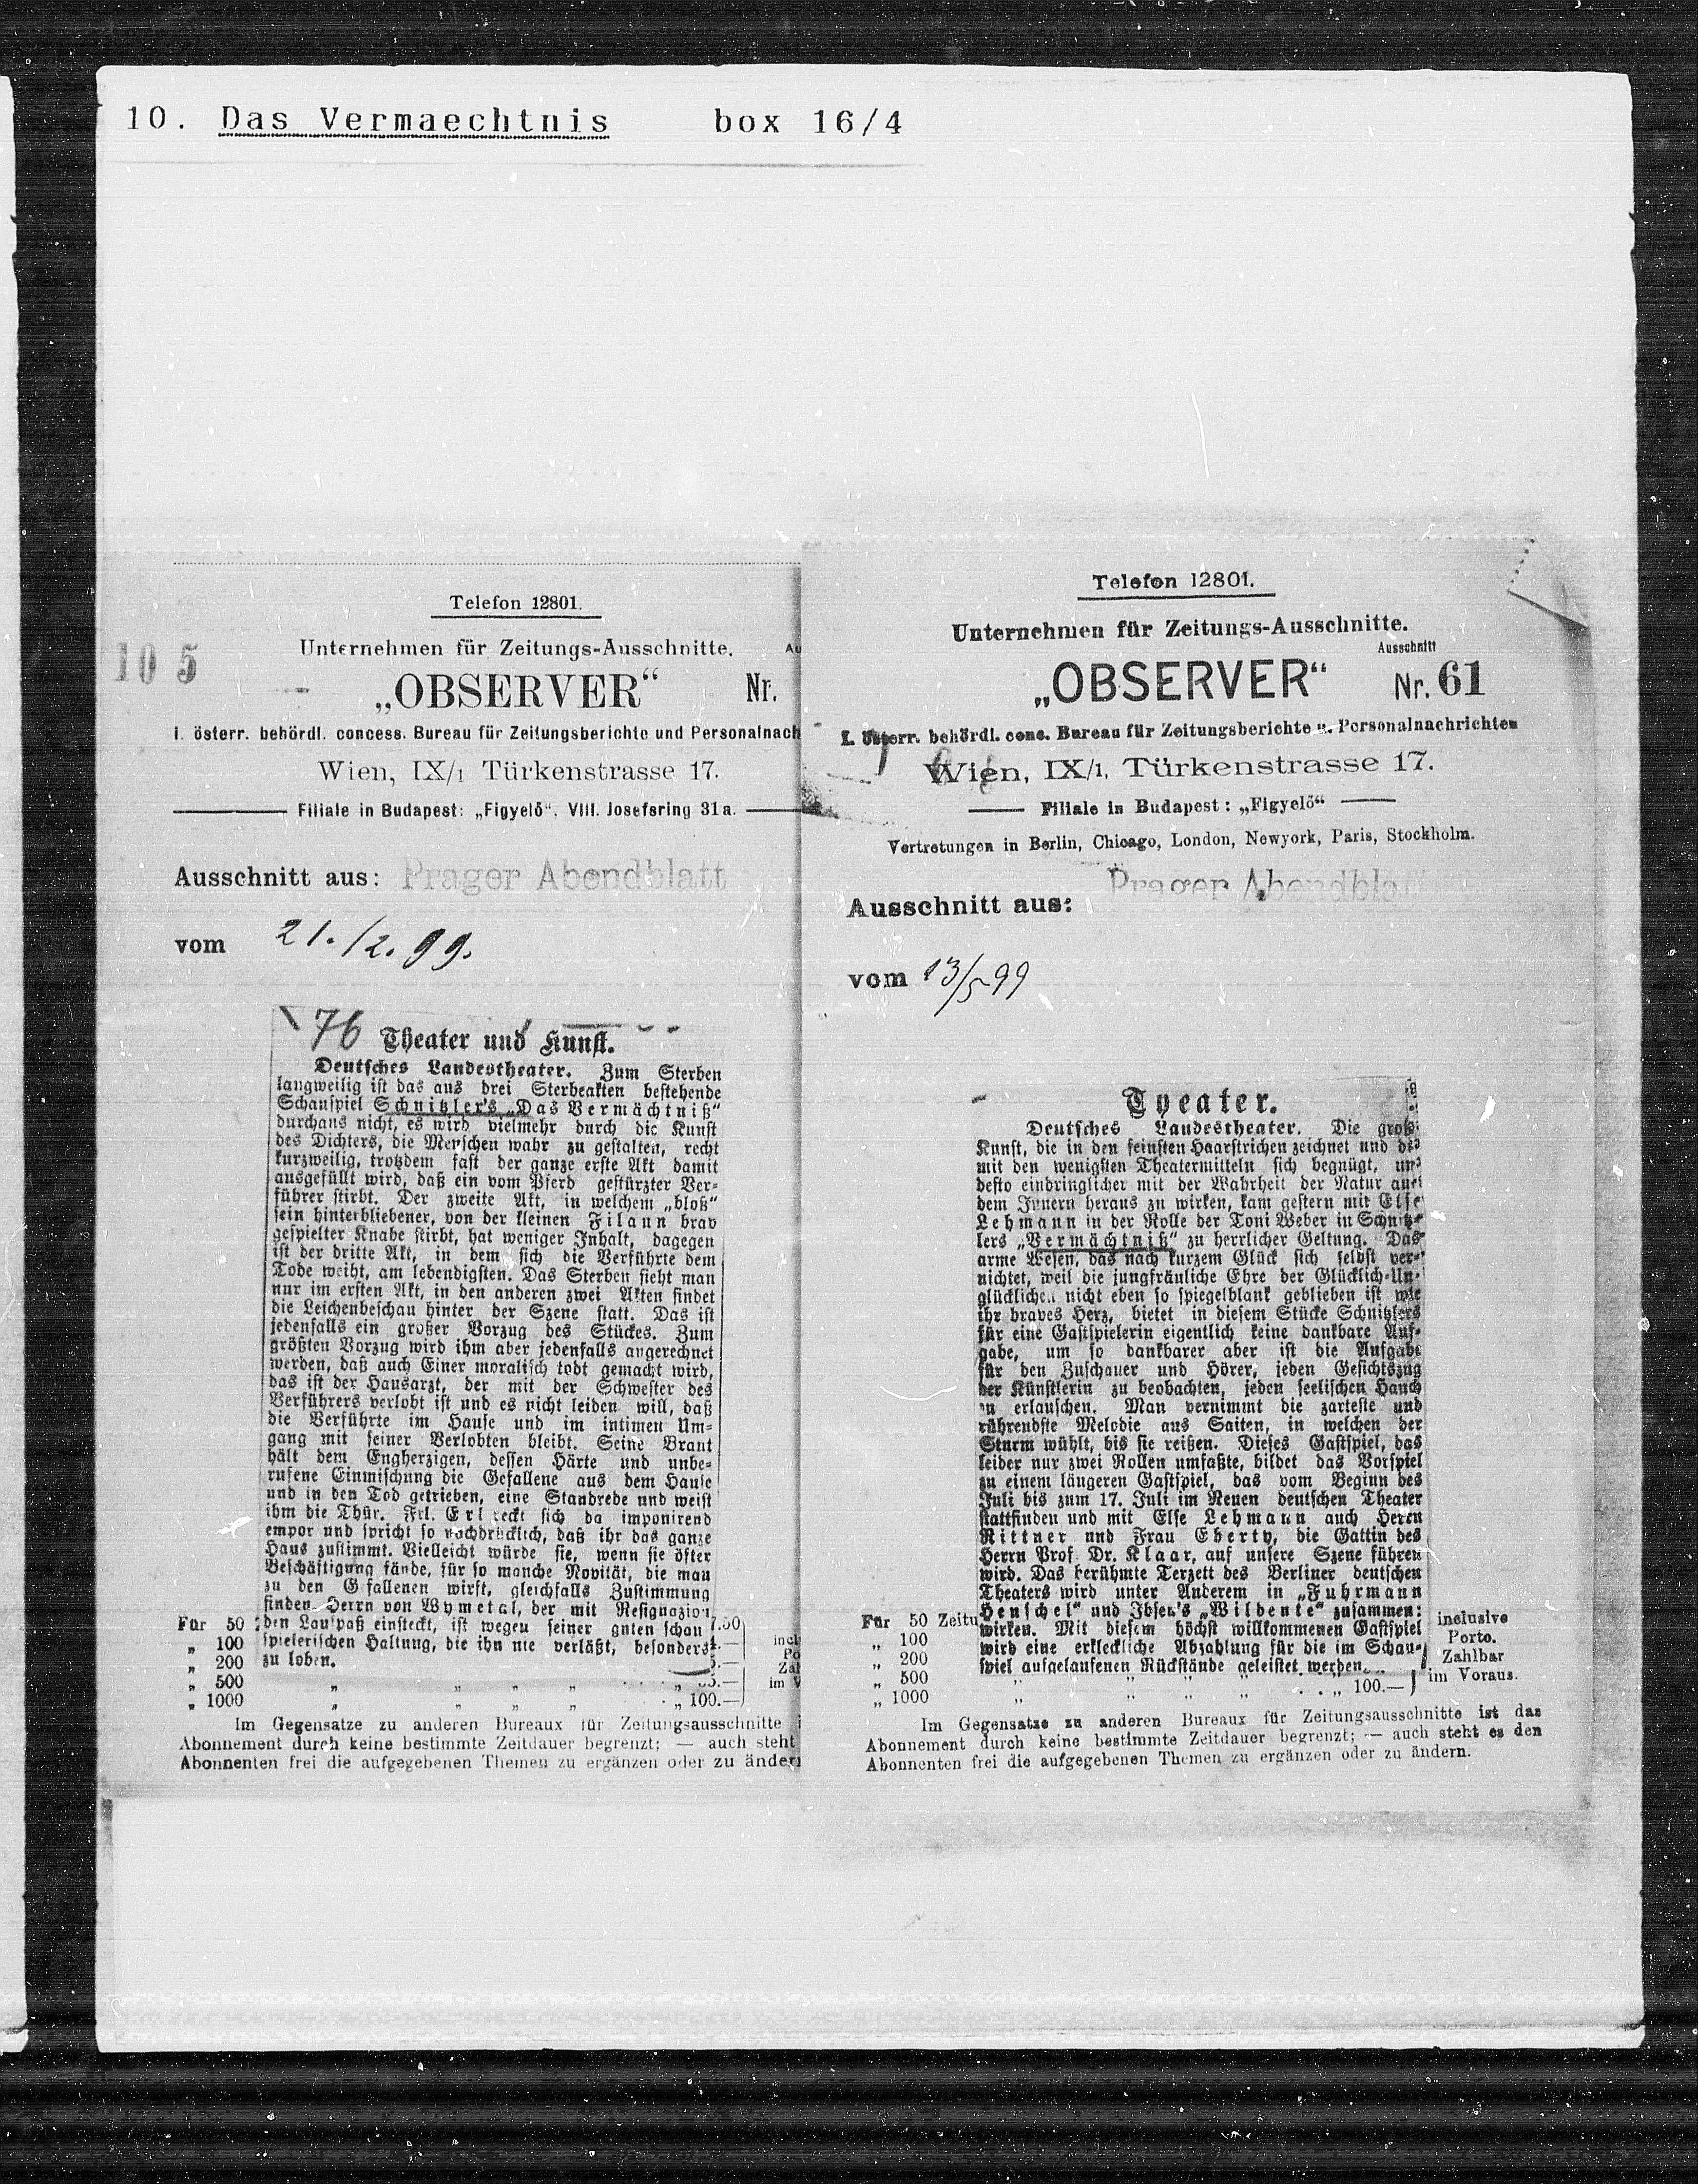 10. Das Vermaechtnis box 16/4
Telefon 12801.
10 5
Unternehmen für Zeitungs-Ausschnitte.
„OBSERVER“ Nr.
I. österr. behördl. concess. Bureau für Zeitungsberichte und Personalnach
Wien, IX/1 Türkenstrasse 17.
Filiale in Budapest: „Figyelő“, VIII. Josefsring 31a.
Ausschnitt aus: Prager Abendblatt
vom 21./2. 99.
76 Theater und Kunst.
Deutsches Landestheater. Zum Sterben
langweilig ist das aus drei Sterbeakten bestehende
Schauspiel Schnitzler's „Das Vermächtniß“
durchaus nicht, es wird vielmehr durch die Kunst
des Dichters, die Menschen wahr zu gestalten, recht
kurzweilig, trotzdem fast der ganze erste Akt damit
ausgefüllt wird, daß ein vom Pferd gestürzter Ver-
führer stirbt. Der zweite Akt, in welchem „bloß“
sein hinterbliebener, von der kleinen Filaun brav
gespielter Knabe stirbt, hat weniger Inhalt, dagegen
ist der dritte Akt, in dem sich die Verführte dem
Tode weiht, am lebendigsten. Das Sterben sieht man
nur im ersten Akt, in den anderen zwei Akten findet
die Leichenbeschau hinter der Szene statt. Das ist
jedenfalls ein großer Vorzug des Stückes. Zum
größten Vorzug wird ihm aber jedenfalls angerechnet
werden, daß auch Einer moralisch todt gemacht wird,
das ist der Hausarzt, der mit der Schwester des
Verführers verlobt ist und es nicht leiden will, daß
die Verführte im Hause und im intimen Um-
gang mit seiner Verlobten bleibt. Seine Braut
hält dem Engherzigen, dessen Härte und unbe-
rufene Einmischung die Gefallene aus dem Hause
und in den Tod getrieben, eine Standrede und weist
ihm die Thür. Frl. Erl reckt sich da imponirend
empor und spricht so nachdrücklich, daß ihr das ganze
Haus zustimmt. Vielleicht würde sie, wenn sie öfter
Beschäftigung fände, für so manche Novität, die man
zu den Gefallenen wirft, gleichfalls Zustimmung
finden. Herrn von Wymetal, der mit Resignazion
den Laufpaß einsteckt, ist wegen seiner guten schau
spielerischen Haltung, die ihn nie verläßt, besonders
zu loben.
Für 50
„ 100 incl
„ 200
„ 500 im V
„ 1000 „ „ „ „ „ 100.—
Im Gegensatze zu anderen Bureaux für Zeitungsausschnitte
Abonnement durch keine bestimmte Zeitdauer begrenzt; — auch steht
Abonnenten frei die aufgegebenen Themen zu ergänzen oder zu ändern
Telefon 12801.
Unternehmen für Zeitungs-Ausschnitte.
Ausschnitt
„OBSERVER“ Nr. 61
I. österr. behördl. conc. Bureau für Zeitungsberichte u. Personalnachrichten
Wien, IX/1, Türkenstrasse 17.
Filiale in Budapest: „Figyelő“
Vertretungen in Berlin, Chicago, London, Newyork, Paris, Stockholm.
Ausschnitt aus: Prager Abendbla
vom 13/5 99
Theater.
Deutsches Landestheater. Die große
Kunst, die in den feinsten Haarstrichen zeichnet und die
mit den wenigsten Theatermitteln sich begnügt, um
desto eindringlicher mit der Wahrheit der Natur aus
dem Innern heraus zu wirken, kam gestern mit Else
Lehmann in der Rolle der Toni Weber in Schnitz-
lers „Vermächtniß“ zu herrlicher Geltung. Das
arme Wesen, das nach kurzem Glück sich selbst ver-
nichtet, weil die jungfräuliche Ehre der Glücklich-Un-
glücklichen nicht eben so spiegelblank geblieben ist wie
ihr braves Herz, bietet in diesem Stücke Schnitzlers
für eine Gastspielerin eigentlich keine dankbare Auf-
gabe, um so dankbarer aber ist die Aufgabe
für den Zuschauer und Hörer, jeden Gesichtszug
der Künstlerin zu beobachten, jeden seelischen Hauch
zu erlauschen. Man vernimmt die zarteste und
rührendste Melodie aus Saiten, in welchen der
Sturm wühlt, bis sie reißen. Dieses Gastspiel, das
leider nur zwei Rollen umfaßte, bildet das Vorspiel
zu einem längeren Gastspiel, das vom Beginn des
Juli bis zum 17. Juli im Neuen deutschen Theater
stattfinden und mit Else Lehmann auch Herrn
Rittner und Frau Eberty, die Gattin des
Herrn Prof. Dr. Klaar, auf unsere Szene führen
wird. Das berühmte Terzett des Berliner deutschen
Theaters wird unter Anderem in „Fuhrmann
Henschel“ und Ibsen's „Wildente“ zusammen:
wirken. Mit diesem höchst willkommenen Gastspiel
wird eine erkleckliche Abzahlung für die im Schau-
spiel aufgelaufenen Rückstände geleistet werden.
Für 50 Zeitu inclusive
„ 100 Porto.
„ 200 Zahlbar
„ 500 im Voraus.
„ 1000 „ „ „ „ „ 100.—
Im Gegensatze zu anderen Bureaux für Zeitungsausschnitte ist das
Abonnement durch keine bestimmte Zeitdauer begrenzt; — auch steht es den
Abonnenten frei die aufgegebenen Themen zu ergänzen oder zu ändern.